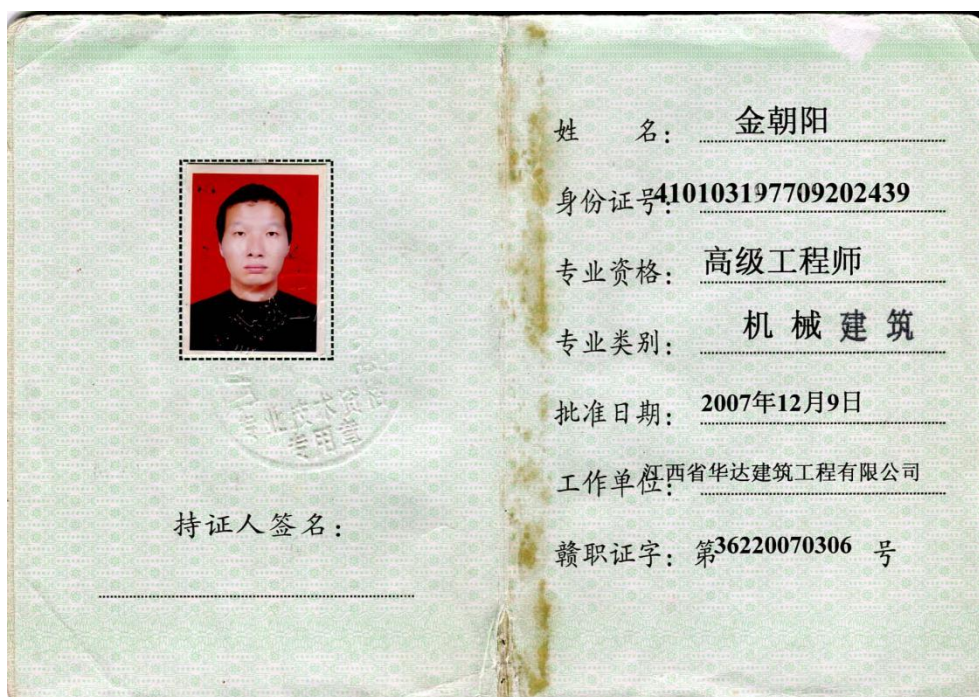 专业技术资格
专用章
持证人签名：
姓 名： 金朝阳
身份证号：410103197709202439
专业资格： 高级工程师
专业类别： 机 械 建 筑
批准日期： 2007年12月9日
工作单位：江西省华达建筑工程有限公司
赣职证字： 第36220070306 号